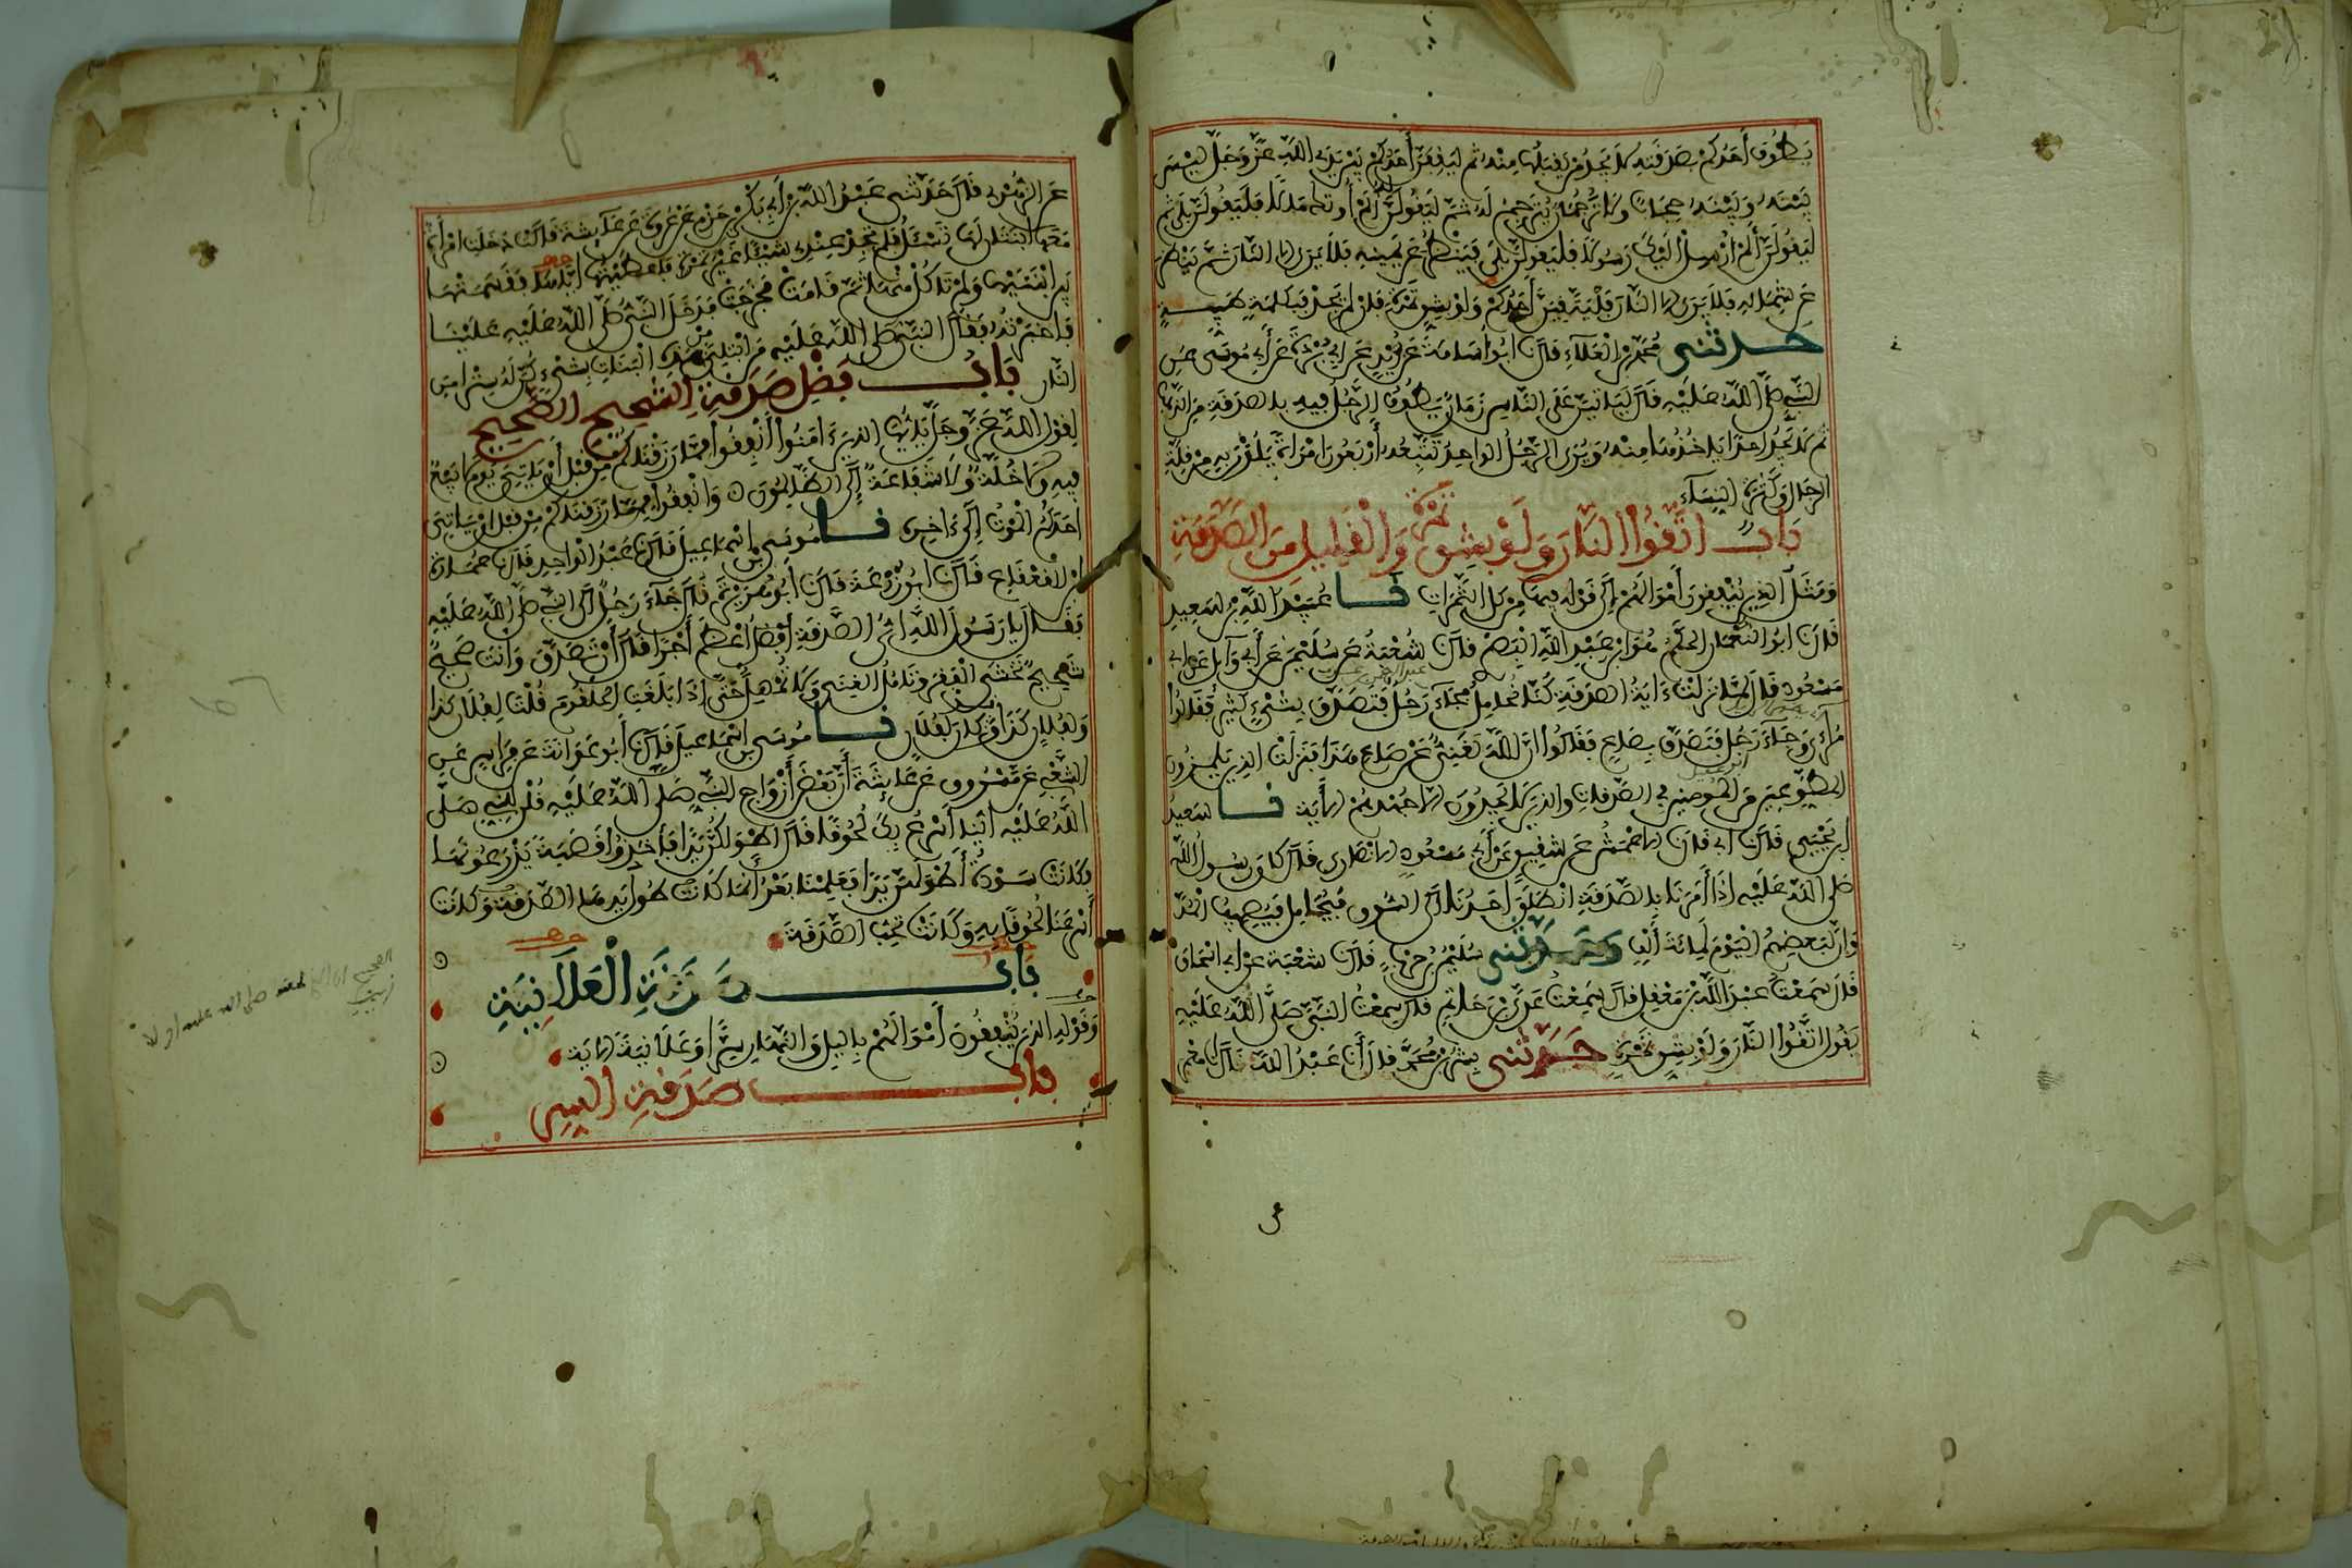 يطوف أحدكم بصدقته لا يجد من يقبلها منه ثم ليقفن أحدكم بين يدي الله عز وجل ليس
بينه وبينه حجاب ولا ترجمان يترجم له ثم ليقولن ألم أوتك مالا فليقولن بلى ثم
ليقولن ألم أرسل إليك رسولا فليقولن بلى فينظر عن يمينه فلا يرى إلا النار ثم ينظر
عن شماله فلا يرى إلا النار فليتقين أحدكم ولو بشق تمرة فإن لم يجد فبكلمة طيبة
حدثني محمد بن العلاء قال نا أبو أسامة عن بريد عن أبي بردة عن أبي موسى عن
النبي صلى الله عليه قال ليأتين على الناس زمان يطوف الرجل فيه بالصدقة من الذهب
ثم لا يجد أحدا يأخذها منه ويرى الرجل الواحد تتبعه أربعون امرأة يلذن به من قلة
الرجال وكثرة النساء
باب اتقوا النار ولو بشق تمرة والقليل من الصدقة
ومثل الذين ينفقون أموالهم إلى قوله فيها من كل الثمرات نا عبيد الله بن سعيد
قال نا أبو النعمان الحكم هو ابن عبد الله البصري قال نا شعبة عن سليمن عن أبي وائل عن أبي
مسعود قال لما نزلت ءاية الصدقة كنا نحامل فجاء رجل فتصدق بشيء كثير فقالوا
مراء وجاء رجل فتصدق بصاع فقالوا إن الله لغني عن صاع هذا فنزلت الذين يلمزون
المطوعين من المومنين في الصدقات والذين لا يجدون إلا جهدهم الأية نا سعيد
ابن يحيى قال نا أبي قال نا الأعمش عن شقيق عن أبي مسعود الأنصاري قال كان رسول الله
صلى الله عليه إذا أمرنا بالصدقة انطلق أحدنا إلى السوق فيحامل فيصيب المد
وإن لبعضهم اليوم لمائة ألف حدثني سليمن بن حرب قال نا شعبة عن أبي اسحاق
قال سمعت عبد الله بن معقل قال سمعت عدي بن حاتم قال سمعت النبي صلى الله عليه
يقول اتقوا النار ولو بشق تمرة حدثني بشر بن محمد قال أنا عبد الله قال أنا معمر
عن الزهري قال حدثني عبد الله بن أبي بكر بن حزم عن عروة عن عائشة قالت دخلت امرأة
معها ابنتان لها تسئل فلم تجد عندي شيئا غير تمرة فأعطيتها إياها فقسمتها
بين ابنتيها ولم تأكل منها ثم قامت فخرجت فدخل النبي صلى الله عليه علينا
فأخبرته فقال النبي صلى الله عليه من ابتلي من هذه البنات بشيء كن له سترا من
النار باب فضل صدقة الشحيح الصحيح
لقول الله عز وجل يأيها الذين ءامنوا أنفقوا مما رزقناكم من قبل أن ياتي يوم لا بيع
فيه ولا خلة ولا شفاعة إلى الظالمون وانفقوا مما رزقناكم من قبل ان ياتي
احدكم الموت إلى ءاخره نا موسى بن اسماعيل قال نا عبد الواحد قال نا عمارة
ابن القعقاع قال نا أبو زرعة قال نا أبو هريرة قال جاء رجل إلى النبي صلى الله عليه
فقال يا رسول الله أي الصدقة أفضل أعظم أجرا قال أن تصدق وأنت صحيح
شحيح تخشى الفقر وتامل الغنى ولا تمهل حتى إذا بلغت الحلقوم قلت لفلان كذا
ولفلان كذا وقد كان لفلان نا موسى بن اسماعيل قال نا أبو عوانة عن فراس عن
الشعبي عن مسروق عن عائشة أن بعض أزواج النبي صلى الله عليه قلن للنبي صلى
الله عليه أينا أسرع بك لحوقا قال أطولكن يدا فأخذوا قصبة يذرعونها
فكانت سودة أطولهن يدا فعلمنا بعد أنما كانت طول يدها الصدقة وكانت
أسرعنا لحوقا به وكانت تحب الصدقة
باب صدقة العلانية
وقوله الذين ينفقون أموالهم باليل والنهار سرا وعلانية الأية
باب صدقة السر